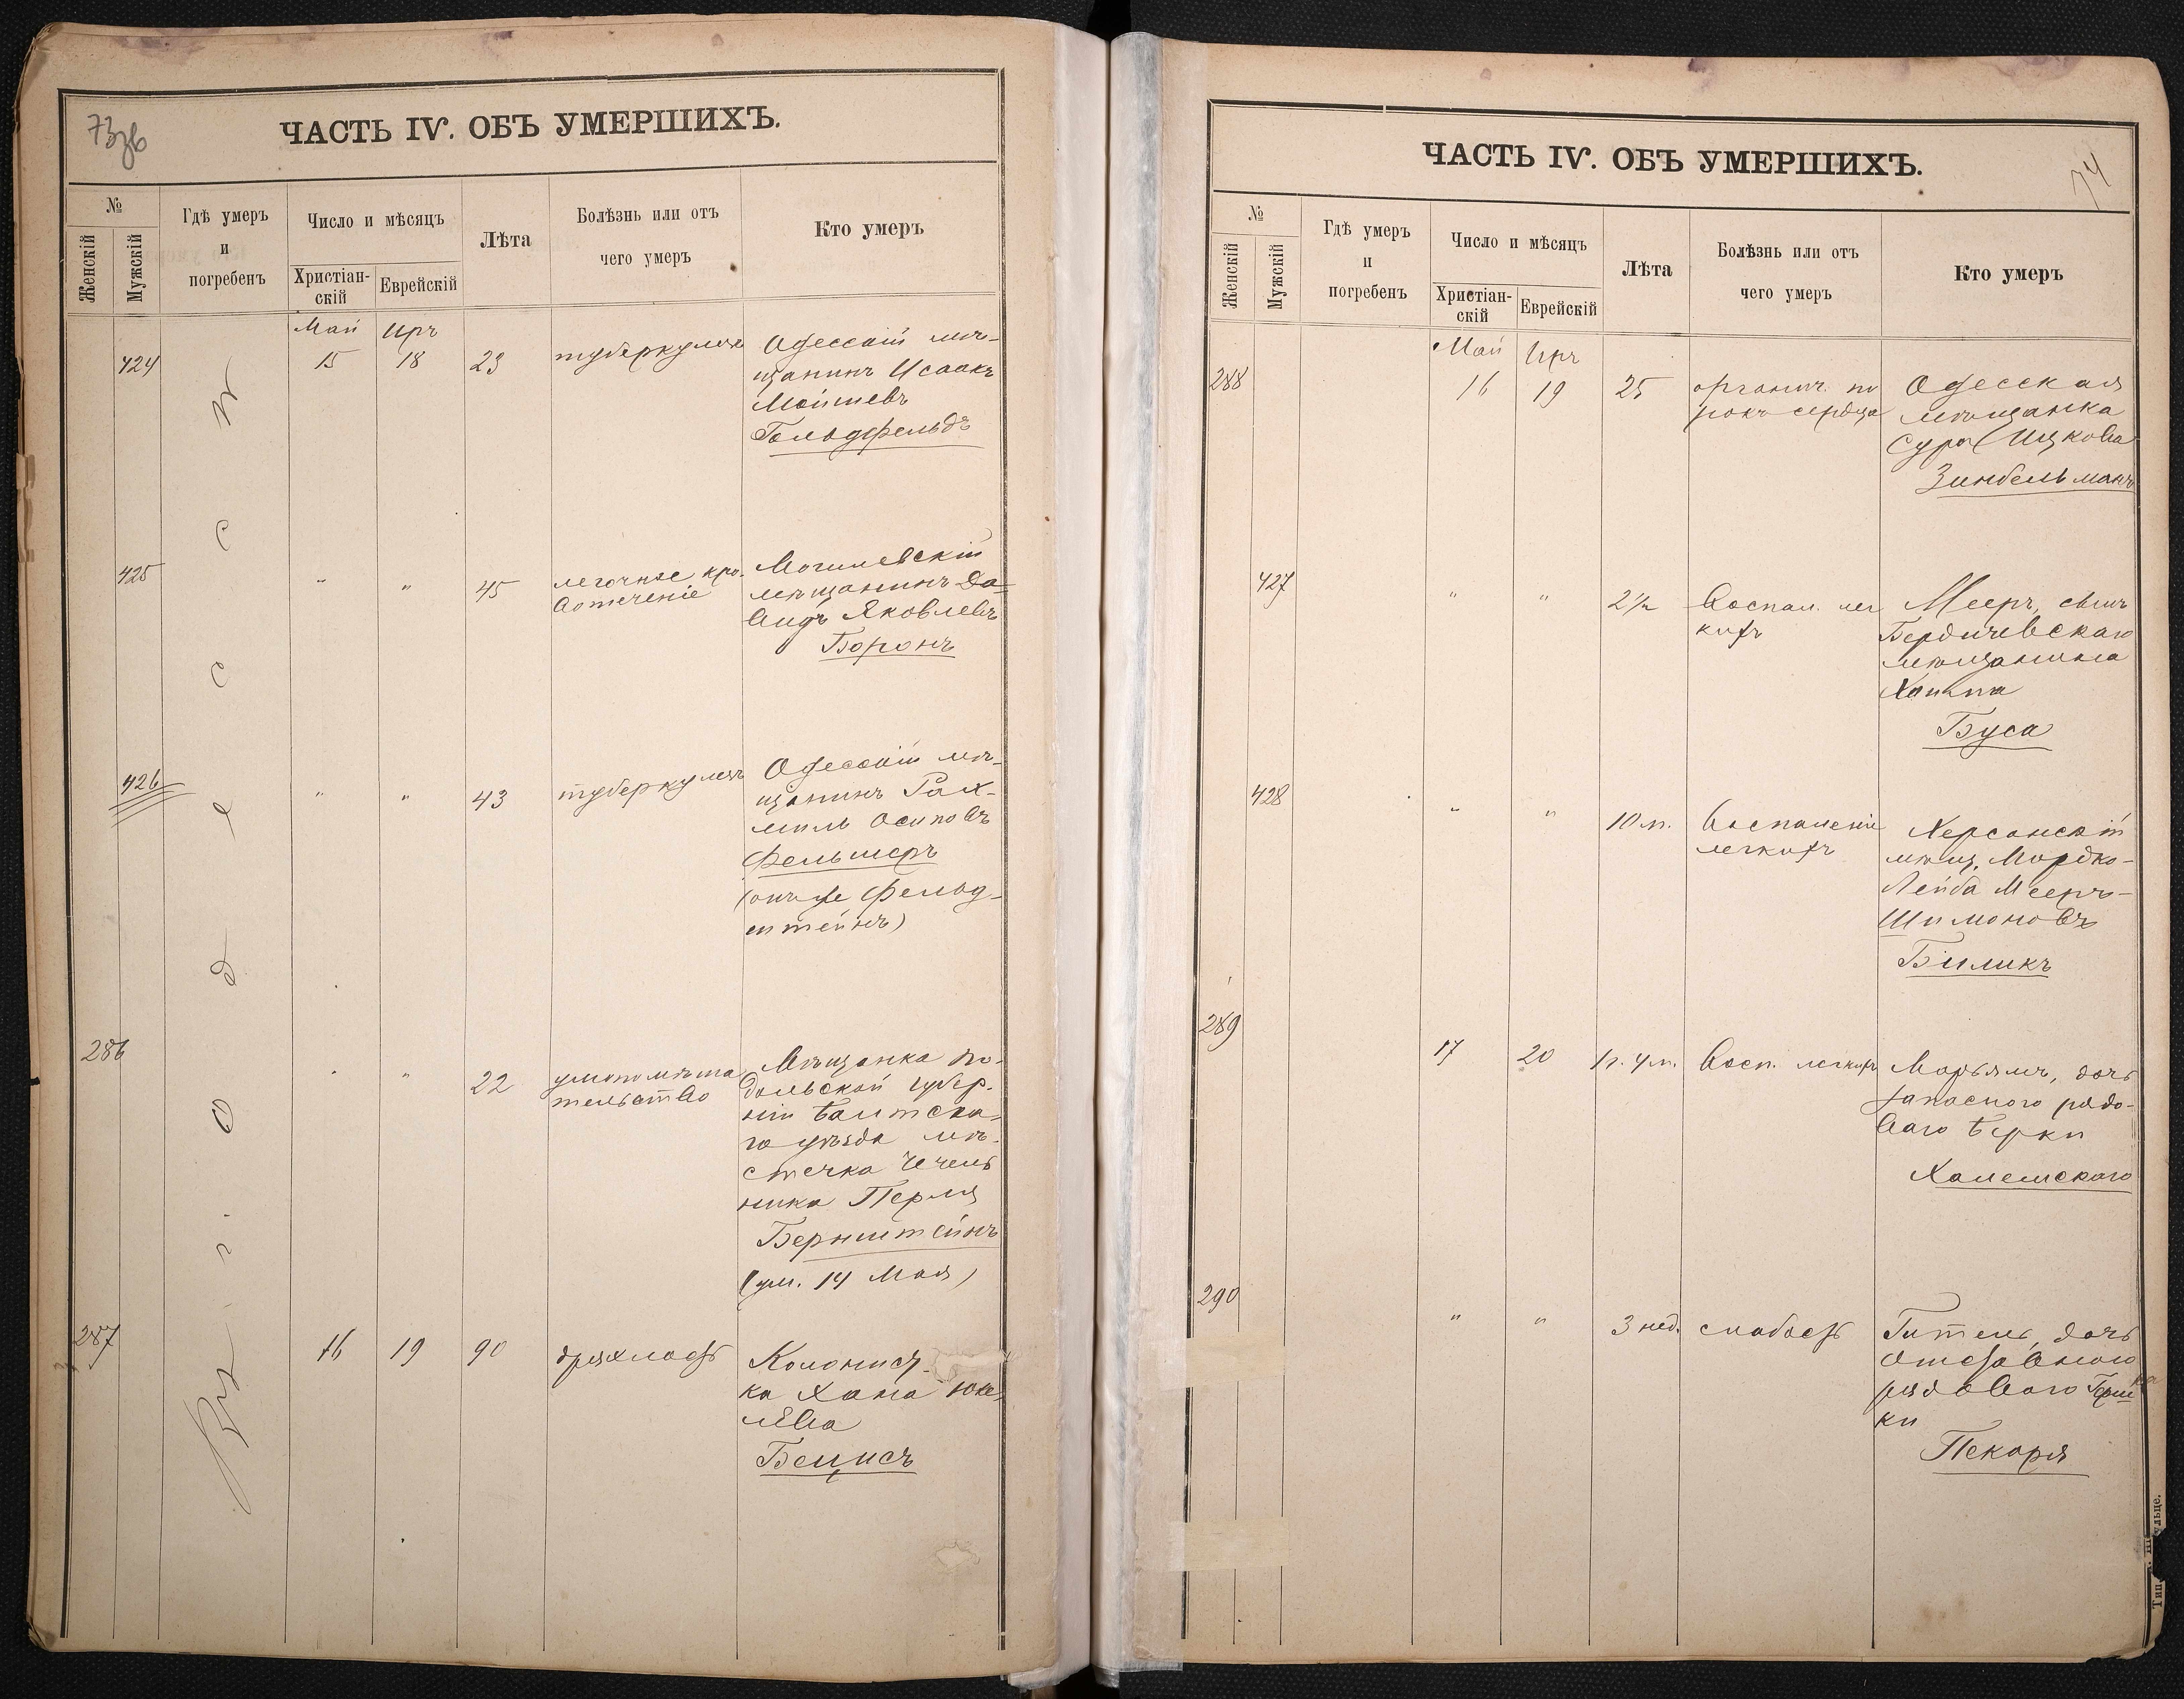 73зв
ЧАСТЬ IV. ОБЪ УМЕРШИХЪ.
№
Женскій
Мужскій
Гдѣ умеръ
и
погребенъ
Число и мѣсяцъ
Христіан-
скій
Еврейскій
Лѣта
Болѣзнь или отъ
чего умеръ
Кто умеръ
Въ г. Одессѣ
Май Иръ
424 15 18 23 туберкулезъ
Одесскій мѣ-
щанинъ Исаакъ
Мойшевъ
Гольдфельдъ
425 " " 45 легочное кро-
вотеченіе
Могилевскій
мѣщанинъ Да-
видъ Яковлевъ
Боронъ
426 " " 43 туберкулезъ
Одесскій мѣ-
щанинъ Рах-
миль Осиповъ
Фельшеръ
(онъ же Фельд-
штейнъ)
286 " " 22 умопомѣша
тельство
Мѣщанка По-
дольской губер-
ніи Балтска-
го уѣзда мѣ-
стечка Чечель
ника Перля
Бернштейнъ
(ум. 14 Мая)
287 16 19 90 дряхлость
Колонист-
ка Хана Юке-
лева
Бецисъ
74
ЧАСТЬ IV. ОБЪ УМЕРШИХЪ.
№
Женскій
Мужскій
Гдѣ умеръ
и
погребенъ
Число и мѣсяцъ
Христіан-
скій
Еврейскій
Лѣта
Болѣзнь или отъ
чего умеръ
Кто умеръ
Май Иръ
288 16 19 25 органич. по
рокъ сердца
Одесская
мѣщанка
Сура Ицкова
Зинбельманъ
427 " " 2½ Воспал. лег
кихъ
Мееръ, сынъ
Бердичевскаго
мѣщанина
Хаима
Буса
428 " " 10 м. Воспаленіе
легкихъ
Херсонскій
мѣщ. Мордко-
Лейба Мееръ-
Шимоновъ
Биликъ
289 17 20 1 г. 4 м. Восп. легкихъ
Марьямъ, дочь
запасного рядо-
ваго Берки
Халемскаго
290 " " 3 нед. слабость
Гитель, дочь
отставного
рядоваго Герш
ки
Пекаря